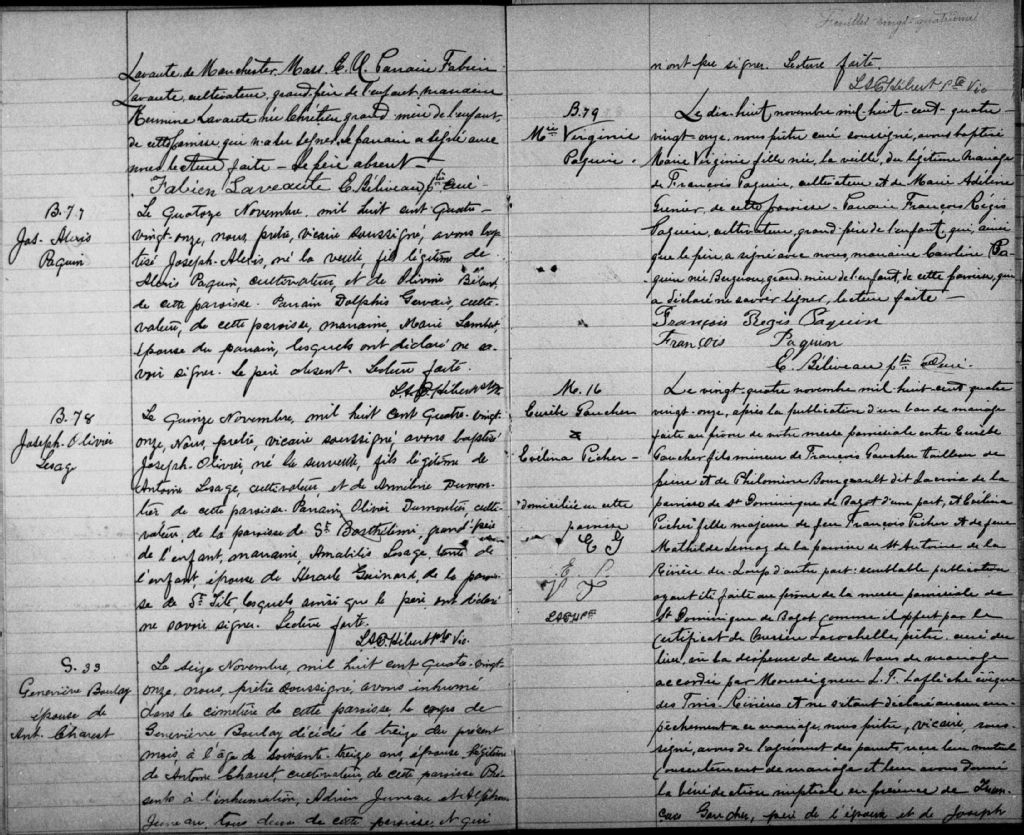 Lavaute de Manchester Mass. E. U. Parrain Fabien
Lavaute, cultivateur, grand-père de l'enfant, marraine
Hermine Lavaute née Chrétien, grand mère de l'enfant,
de cette paroisse qui n'a su signer. Le parrain a signé avec
nous lecture faite — Le père absent —
Fabien Laveaute E. Béliveau ptre Curé
B. 77
Jos. Alexis
Paquin
Le Quatorze Novembre, mil huit cent quatre-
vingt-onze, nous, prêtre, vicaire soussigné, avons bap
tisé Joseph-Alexis, né la veille, fils légitime de
Alexis Paquin, cultivateur, et de Olivine Béland,
de cette paroisse. Parrain Dolphis Gervais, culti-
vateur, de cette paroisse, marraine, Marie Lambert
épouse du parrain, lesquels ont déclaré ne sa-
voir signer. Le père absent. Lecture faite.
B. 78
Joseph-Olivier
Lesage
Le Quinze Novembre, mil huit cent Quatre-vingt-
onze, Nous, prêtre, vicaire soussigné, avons baptisé
Joseph-Olivier, né la surveille, fils légitime de
Antoine Lesage, cultivateur, et de Dumou-
lier de cette paroisse. Parrain Olivier Dumoutier, culti-
vateur, de la paroisse de St Barthélemi, grand'père
de l'enfant, marraine, Amabilis Lesage, tante de
l'enfant, épouse de de la parois-
se de St Tite lesquels ainsi que le père, ont déclaré
ne savoir signer. Lecture faite.
L. A. O. Hébert Ptre Vic.
S. 33
Geneviève Boulay
épouse de
Ant. Charest
Le seize Novembre, mil huit cent Quatre-vingt-
onze, nous, prêtre soussigné, avons inhumé
dans le cimetière de cette paroisse le corps de
Geneviève Boulay, décédée le treize du présent
mois, à l'âge de soixante-treize ans, épouse légitime
de Antoine Charest cultivateur, de cette paroisse Pré-
sents à l'inhumation, Adrien Juneau et Alphonse
Juneau, tous deux de cette paroisse. et qui
Feuillet vingt-quatrième
n'ont pu signer. Lecture faite.
Hébert Ptre Vic
B. 79
Mie Virginie
Paquin.
Le dix-huit novembre mil huit-cent-quatre-
vingt-onze, nous prêtre curé soussigné, avons baptisé
Marie Virginie fille née, la veille, du légitime mariage
de François Paquin, cultivateur et de Marie Adéline
Grenier, de cette paroisse. Parrain François Régis
Paquin, cultivateur, grand-père de l'enfant, qui, ainsi
que le père, a signé avec nous, marraine Caroline Pa-
quin née Bergeron, grand-mère de l'enfant, de cette paroisse, qui
a déclaré ne savoir signer, lecture faite —
François Regis Paquin
François Paquin
E. Béliveau ptre Curé.
M. 16
Gaucher
&
Evélina Picher —
domiciliés en cette
paroisse
E G
Le vingt-quatre novembre mil huit-cent quatre
vingt-onze, après la publication d'un ban de mariage
faite au prône de notre messe paroissiale entre
Gaucher fils mineur de François Gaucher tailleur de
pierre et de Philomène Bourgeault dit Lacroix de la
paroisse de St Dominique de Bagot d'une part, et Evélina
Picher fille majeure de feu François Picher et de feue
Mathilde de la paroisse de St Antoine de la
Rivière-du-Loup d'autre part: semblable publication
ayant été faite au prône de la messe paroissiale de
St Dominique de Bagot comme il appert par le
certificat de Messire Larochelle, prêtre curé du
lieu, vu la dispense de deux bans de mariage
accordée par Monseigneur L. F. Laflèche évêque
des Trois-Rivières et ne s'étant déclaré aucun em-
pêchement à ce mariage, nous prêtre, vicaire, sous-
signé, avons de l'agrément des parents, reçu leur mutuel
consentement de mariage et leur avons donné
la bénédiction nuptiale en présence de Fran-
çois Gaucher, père de l'époux et de Joseph